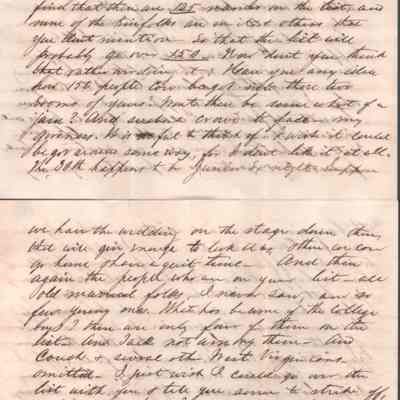 find that there are 125 names on the list, and
none of the kinfolks are in it & others that
you don't mention. So that the list will
probably go over 150. Now don't you think
that rather crowding it? Have you any idea
how 150 people can be got into those two
rooms of yours. Wont there be some what of a
jam? And such a crowd to face - my
goodness. It is awful to think of. I wish it could
be got around some way, for I dont like it at all.
The 30th happens to be
we have the wedding on the stage down there
that will give enough to look at as others we can
go home & have a quiet time - And then
again the people who are on your list - all
old married folks, I never saw, and so
few young ones. What has become of the College
boys? There are only four of them on the
list and Jack not among them - And
Couch & several other West Virginians
omitted - I just wish I could go over the
list with you & tell you some to strike off,